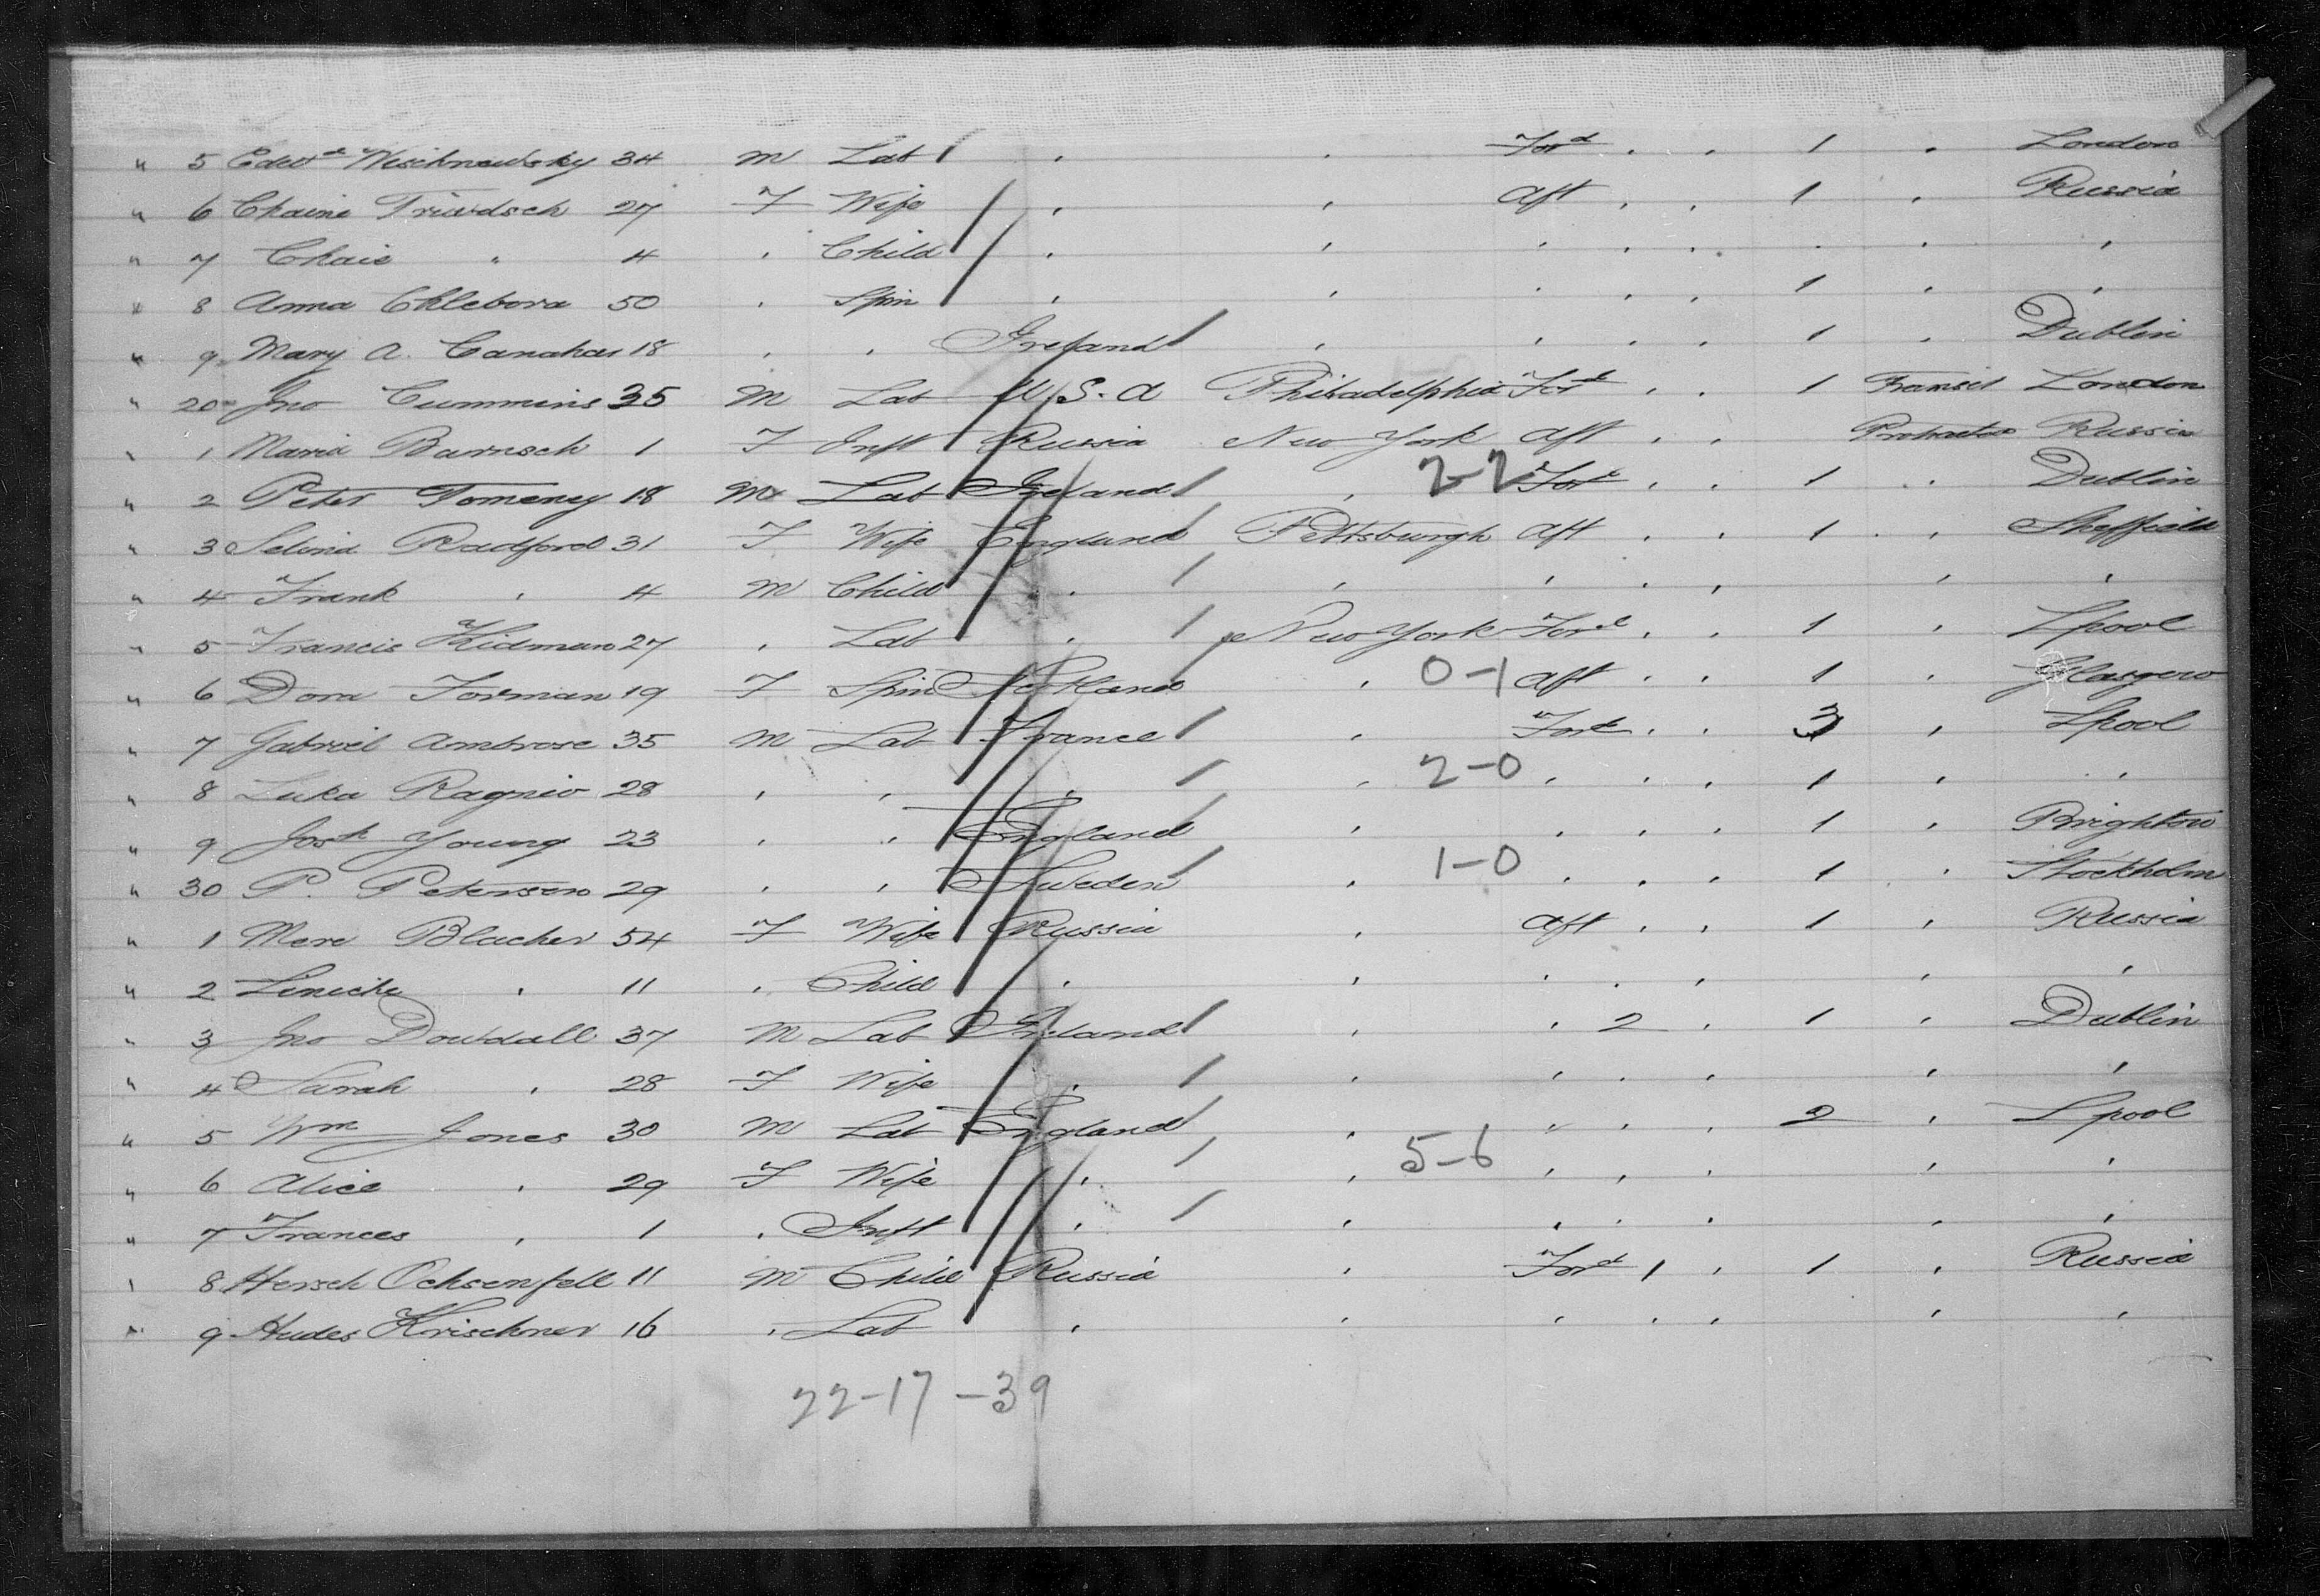 " 5 Edwd Wischnewsky 34 M Lab " " Ford " " 1 " London
" 6 Chaine Triudsch 27 F Wife " " Aft " " 1 " Russia
" 7 Chaie " 4 " Child " " " " " " " "
" 8 Anna Chlebova 50 " Spin " " " " " 1 " "
" 9 Mary A. Canahar 18 " " Ireland " " " " 1 " Dublin
" 20 Jno Cummins 35 M Lab U.S.A Philadelphia Ford " " 1 Transit London
" 1 Maria Barnsch 1 F Inft Russia New York Aft " " Protracted Russia
" 2 Peter Tomeney 18 M Lab Ireland " 2-2 Ford " " 1 " Dublin
" 3 Selina Radford 31 F Wife England Pittsburgh Aft " " 1 " Sheffield
" 4 Frank " 4 M Child " " " " " " "
" 5 Francis Kidman 27 " Lab " New York Ford " " 1 " Lpool
" 6 Dora Forman 19 F Spin Scotland " 0-1 Aft " " 1 " Glasgow
" 7 Gabriel Ambrose 35 M Lab France " Ford " " 3 " Lpool
" 8 Luka Ragniv 28 " " " " 2-0 " " " 1 " "
" 9 Josh Young 23 " " England " " " " 1 " Brighton
" 30 P. Peterson 29 " " Sweden " 1-0 " " " 1 " Stockholm
" 1 Mere Blacher 54 F Wife Russia " Aft " " 1 " Russia
" 2 Linecke " 11 " Child " " " " " " "
" 3 Jno Dowdall 37 M Lab Ireland " " 2 " 1 " Dublin
" 4 Sarah " 28 F Wife " " " " " " "
" 5 Wm Jones 30 M Lab England " " " " 2 " Lpool
" 6 Alice " 29 F Wife " " 5-6 " " " " "
" 7 Frances " 1 " Inft " " " " " " "
" 8 Hersch Ochsenfell 11 M Child Russia " Ford 1 " 1 " Russia
" 9 Hudes Krischner 16 " Lab " " " " " " "
22-17-39